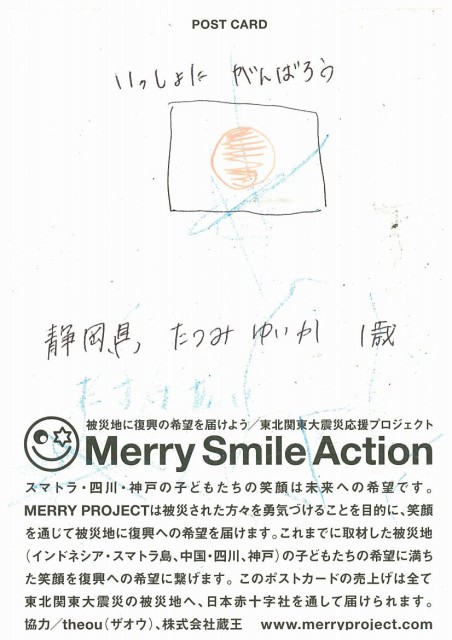 POST CARD
いっしょに がんばろう
静岡県 たつみ ゆいか 1歳
被災地に復興の希望を届けよう/東北関東大震災応援プロジェクト
Merry Smile Action
スマトラ・四川・神戸の子どもたちの笑顔は未来への希望です。
MERRY PROJECTは被災された方々を勇気づけることを目的に、笑顔
を通じて被災地に復興への希望を届けます。これまでに取材した被災地
(インドネシア・スマトラ島、中国・四川、神戸)の子どもたちの希望に満ち
た笑顔を復興への希望に繋げます。このポストカードの売上げは全て
東北関東大震災の被災地へ、日本赤十字社を通して届けられます。
協力/theou(ザオウ)、株式会社蔵王 www.merryproject.com